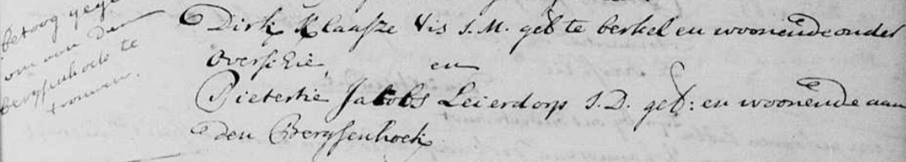 betoog gege
om aan den
bergsenhoek te
trouwen.
Dirk Klaasze Vis J.M. geb te berkel en woonende onder
Overschie, en
Pietertie Jacobs Leierdorp J.D. geb: en woonende aan
den Bergsenhoek